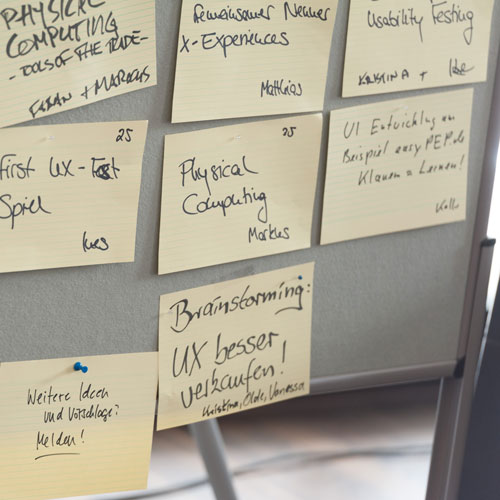 PHYSICAL
COMPUTING
- TOOLS OF THE TRADE-
+ MARKUS
Gemeinsamer Nenner
X-Experiences
Matthias
Usability Testing
KRISTINA +
25
First UX-
Spiel
Ines
25
Physical
Computing
Markus
UI Entwicklung am
Beispiel easyPEP.de
Klauen = Lernen!
Brainstorming:
UX besser
verkaufen!
Kristina, Olde, Vanessa
Weitere Ideen
und Vorschläge?
Melden!